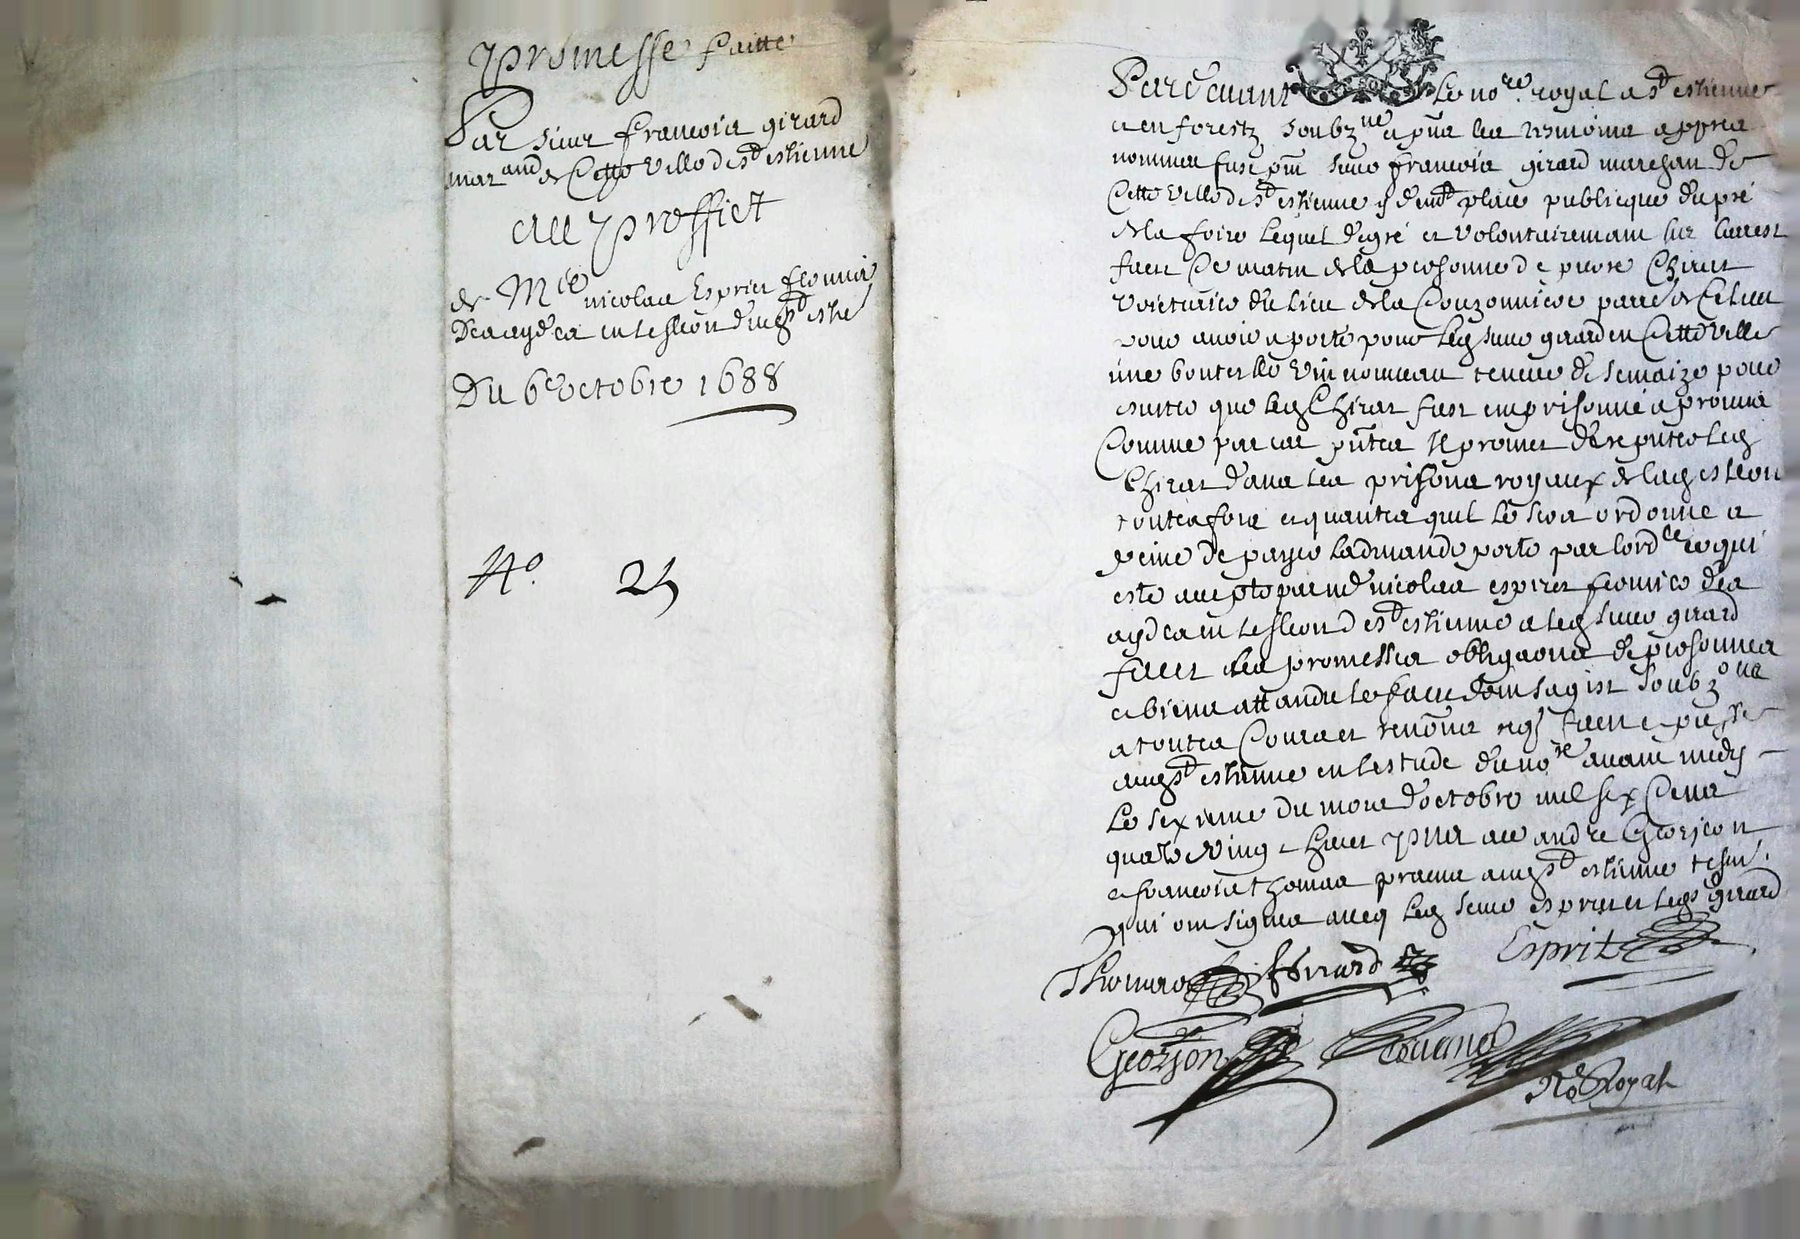 promesse faitte
Par sieur francois girard
marand de Cette ville de st estienne
Au proffict
de Mre nicolas Esprit
des aydes en leslection dud st esne
Du 6e octobre 1688
No. 25
Pardevant Le nore. royal a st estienne
en forestz soubzne & pnt les tesmoins appres
nommes fust pnt sieur francois girard marchan de
Cette ville de st estienne y demt place publicque du pré
de la foire Lequel de gré et volontairemant sur larrest
faict Ce matin de la personne de pierre Chirat
voicturier du lieu de la Couzonniere parre de
pour avoir aporte pour led sieur girard en Cette ville
une bouteille vin nouveau tenue de pour
que led Chirat fust emprisonné a promis
Comme par ces pntes Il promet de led
Chirat dans les prisons royaux de lad eslection
touttes fois et quantes quil Le sera ordonne a
peine de payer Ladmande porte par lordce ce qui
este accepte par me nicolas esprit des
aydes en leslection de st estienne & led sieur girard
faict les promesses obligaons de personnes
& biens attandu le faict dont sagist soubzons
a touttes Cours et renons faict & passe
aud st estienne en lestude du nore avant midy
Le sixieme du mois doctobre mil six Cens
quatre vingt huict pnts andre Georjon
& francois thomas aud st estienne tesm.
qui ont signes avecq led sieur esprit et led girard
Thomas Girard Esprit
Georjon
Nre Royal